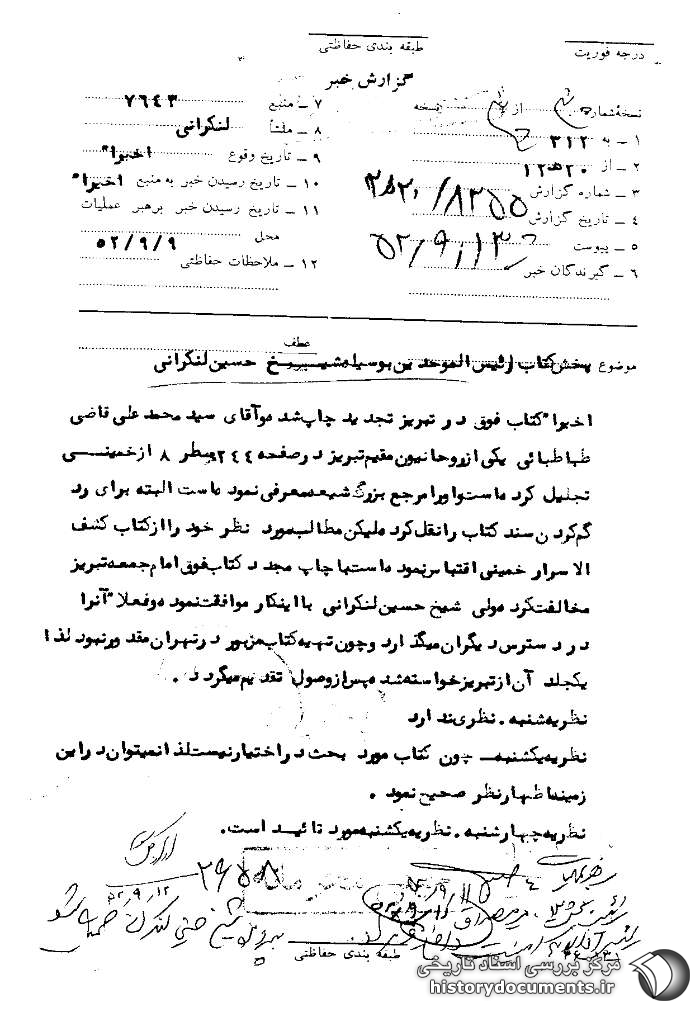 درجه فوریت
طبقه بندی حفاظتی
گزارش خبر
نسخه شماره از نسخه
۱ ـ به ۳۱۲
۲ ـ از ۲۰ ه ۱۲
۳ ـ شماره گزارش ۸۲۵۵
۴ ـ تاریخ گزارش
۵ ـ پیوست ۵۲/۹/۱۳
۶ ـ گیرندگان خبر
۷ ـ منبع ۷۶۴۳
۸ ـ منشأ لنکرانی
۹ ـ تاریخ وقوع اخیرا"
۱۰ ـ تاریخ رسیدن خبر به منبع اخیرا"
۱۱ ـ تاریخ رسیدن خبر برهبر عملیات
محل ۵۲/۹/۹
۱۲ ـ ملاحظات حفاظتی
عطف
موضوع پخش کتاب رئیس الموحدین بوسیله شیخ حسین لنکرانی
اخیرا" کتاب فوق در تبریز تجدید چاپ شده و آقای سید محمد علی قاضی
طباطبائی یکی از روحانیون مقیم تبریز در صفحه ۲۴۴ سطر ۸ از خمینی
تجلیل کرده است و او را مرجع بزرگ شیعه معرفی نموده است البته برای رد
گم کردن سند کتاب را نقل کرده لیکن مطالب مورد نظر خود را از کتاب کشف
الاسرار خمینی اقتباس نموده است با چاپ مجدد کتاب فوق امام جمعه تبریز
مخالفت کرده ولی شیخ حسین لنکرانی با اینکار موافقت نموده و فعلا" آنرا
در دسترس دیگران میگذارد و چون تهیه کتاب مزبور در تهران مقدور نبود لذا
یکجلد آن از تبریز خواسته شده پس از وصول تقدیم میگردد .
نظریه شنبه . نظری ندارد
نظریه یکشنبه ـ چون کتاب مورد بحث در اختیار نیست لذا نمیتوان در این
زمینه اظهار نظر صحیح نمود .
نظریه چهارشنبه . نظریه یکشنبه مورد تائید است .
۲۹۵۰۸
۵۲/۹/۱۲
طبقه بندی حفاظتی
مرکز بررسی اسناد تاریخی
historydocuments.ir